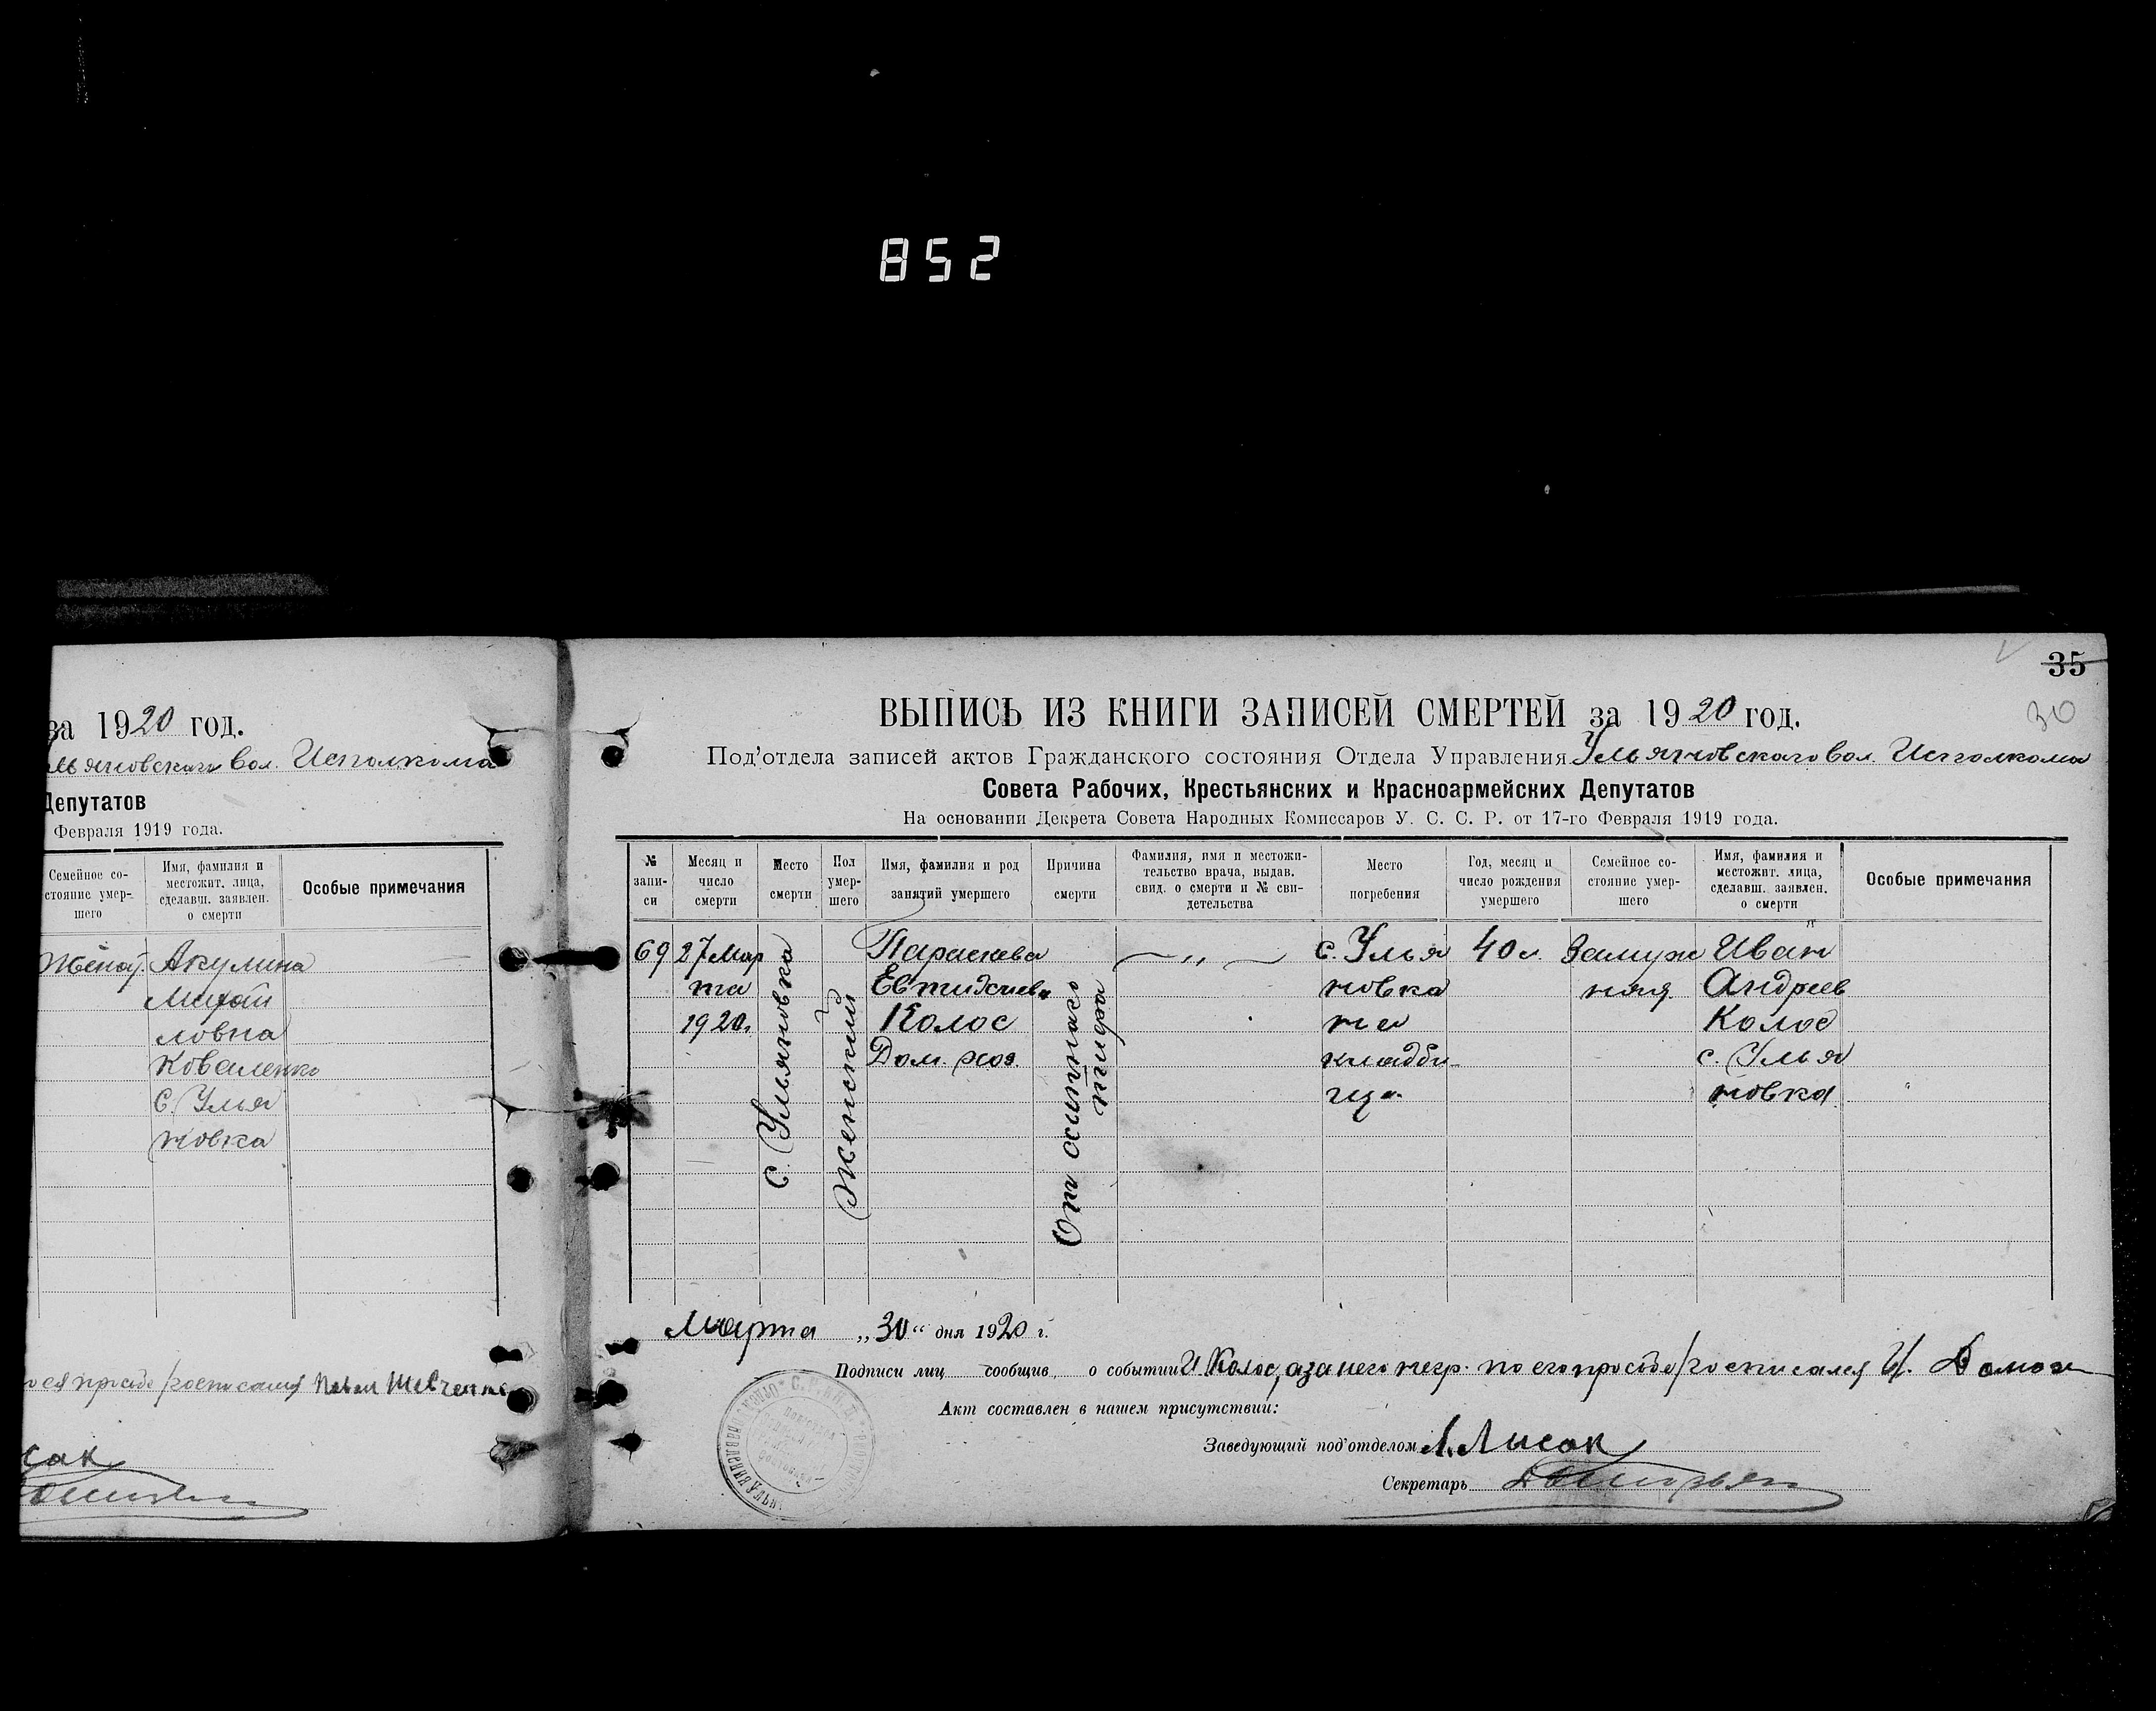 852
за 1920 год.
льяновского вол. Исполкома
Депутатов
Февраля 1919 года.
Семейное со-
стояние умер-
шего
Имя, фамилия и
местожит. лица,
сделавш. заявлен.
о смерти
Особые примечания
Женат.
Акулина
Михай
ловна
Коваленко
с. Улья
новка
роспи сался Павел Шевченко
сак
35
30
ВЫПИСЬ ИЗ КНИГИ ЗАПИСЕЙ СМЕРТЕЙ за 1920 год.
Под'отдела записей актов Гражданского состояния Отдела Управления Ульяновского вол. Исполкома
Совета Рабочих, Крестьянских и Красноармейских Депутатов
На основании Декрета Совета Народных Комиссаров У. С. С. Р. от 17-го Февраля 1919 года.
№
запи-
си
Месяц и
число
смерти
Место
смерти
Пол
умер-
шего
Имя, фамилия и род
занятий умершего
Причина
смерти
Фамилия, имя и местожи-
тельство врача, выдав.
свид. о смерти и № сви-
детельства
Место
погребения
Год, месяц и
число рождения
умершего
Семейное со-
стояние умер-
шего
Имя, фамилия и
местожит. лица,
сделавш. заявлен.
о смерти
Особые примечания
69
27 Мар
та
1920.
с. Ульяновка
Женский
Параскева
Евтихиева
Колос
Дом. хоз.
От сыпнаго
тифа
— „ —
с. Улья
новка
на
кладби-
ще.
40 л.
Замуж
няя.
Иван
Андреев
Колос
с. Улья
новка.
Марта „30“ дня 1920 г.
Подписи лиц сообщив. о событии И. Колос, а за него негр. по его просьбе росписался И.
Акт составлен в нашем присутствии:
Заведующий под'отделом Лысак
Секретарь